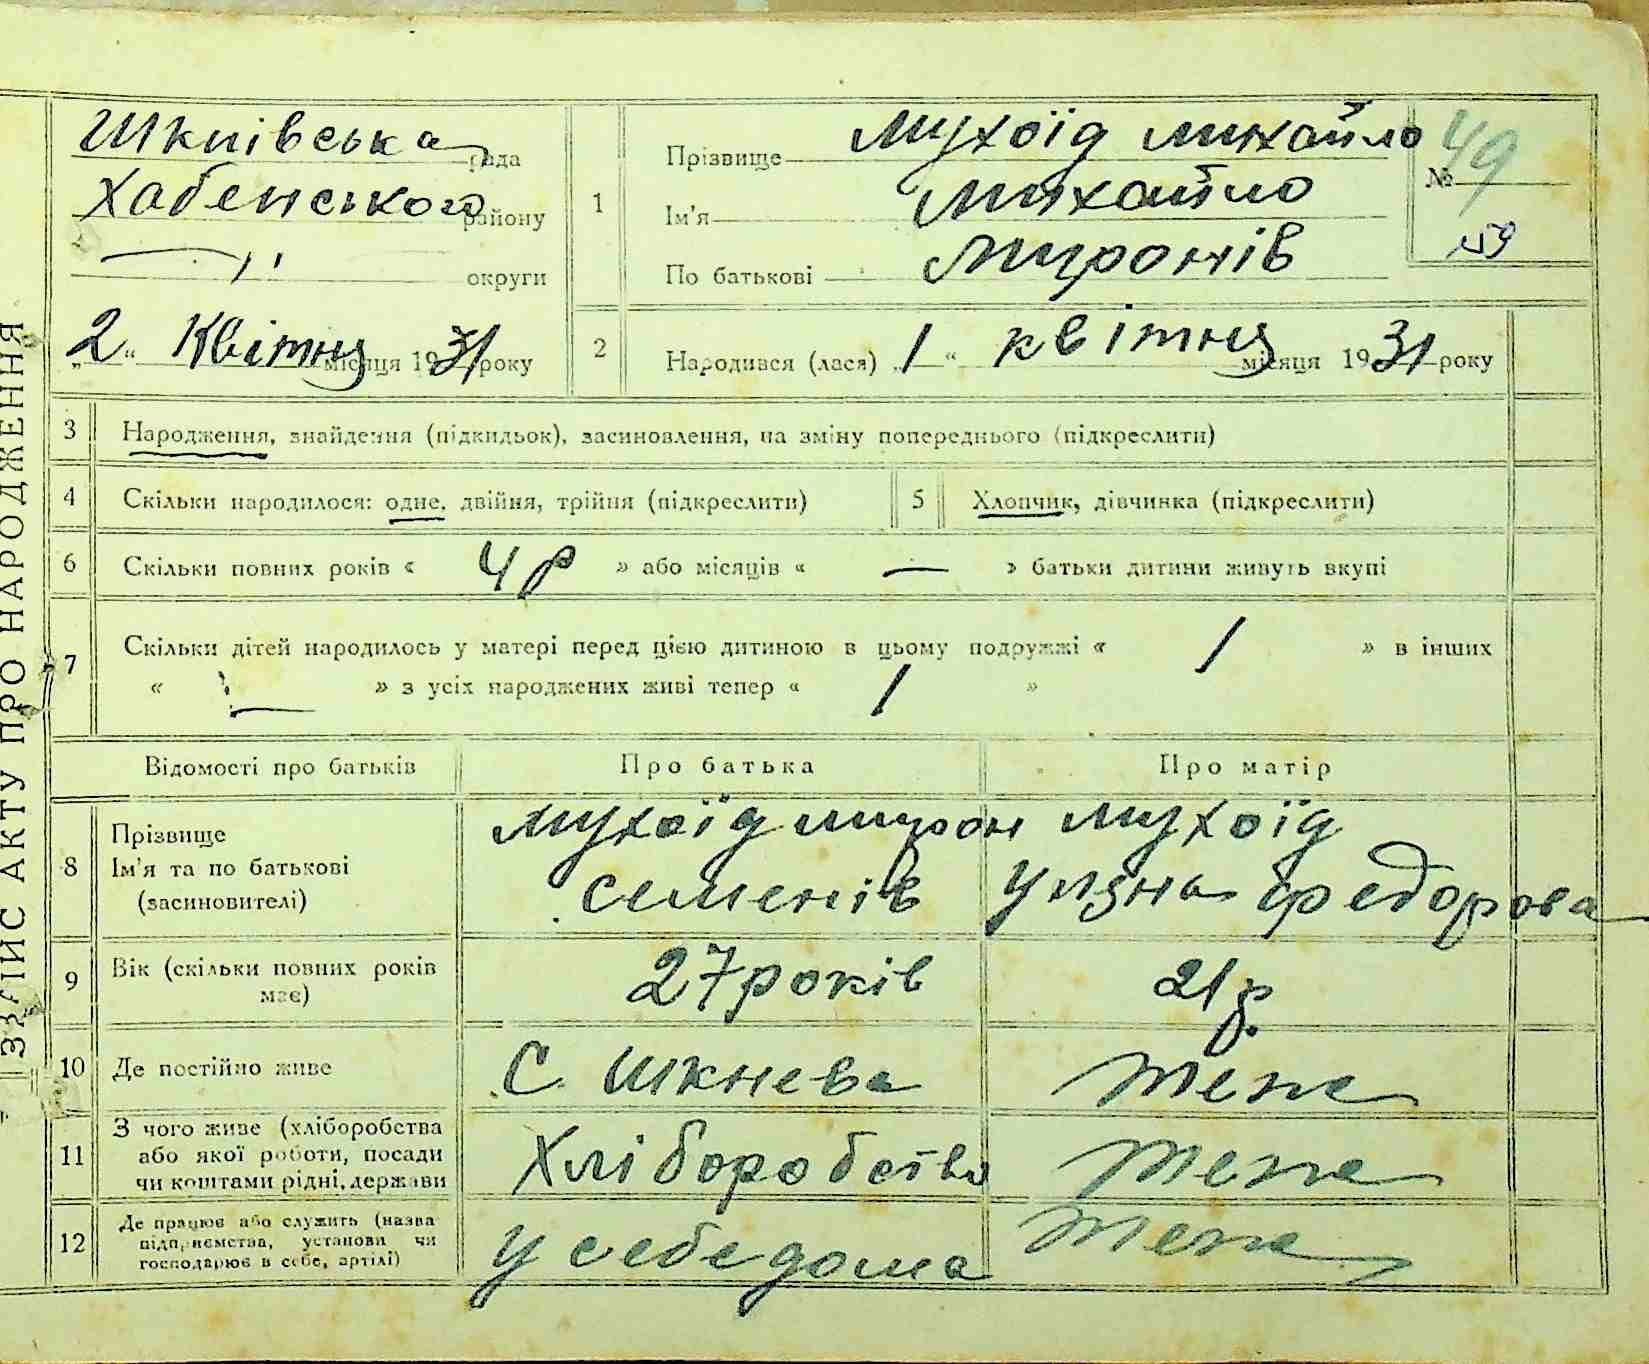 ЗАПИС АКТУ ПРО НАРОДЖЕННЯ
Шкнівська рада
Хабенського району
—"— округи
„2“ Квітня місяця 1931 року
1 Прізвище Мухоїд Михайло
Ім'я Михайло
По батькові Миронів
№ 49
159
2 Народився (лася) „1“ квітня місяця 1931 року
3 Народження, знайдення (підкидьок), засиновлення, на зміну попереднього (підкреслити)
4 Скільки народилося: одне, двійня, трійня (підкреслити) 5 Хлопчик, дівчинка (підкреслити)
6 Скільки повних років « 4 р » або місяців « — » батьки дитини живуть вкупі
7 Скільки дітей народилось у матері перед цією дитиною в цьому подружжі « 1 » в інших
« — » з усіх народжених живі тепер « 1 »
Відомості про батьків Про батька Про матір
8 Прізвище
Ім'я та по батькові
(засиновителі)
Мухоїд Мирон
Семенів
Мухоїд
Уляна Федорова
9 Вік (скільки повних років
має)
27 років
21 р.
10 Де постійно живе С. Шкнева Теж
11 З чого живе (хліборобства
або якої роботи, посади
чи коштами рідні, держави
Хліборобство
Теж
12 Де працює або служить (назва
підприємства, установи чи
господарює в себе, артілі)
У себе дома
Теж